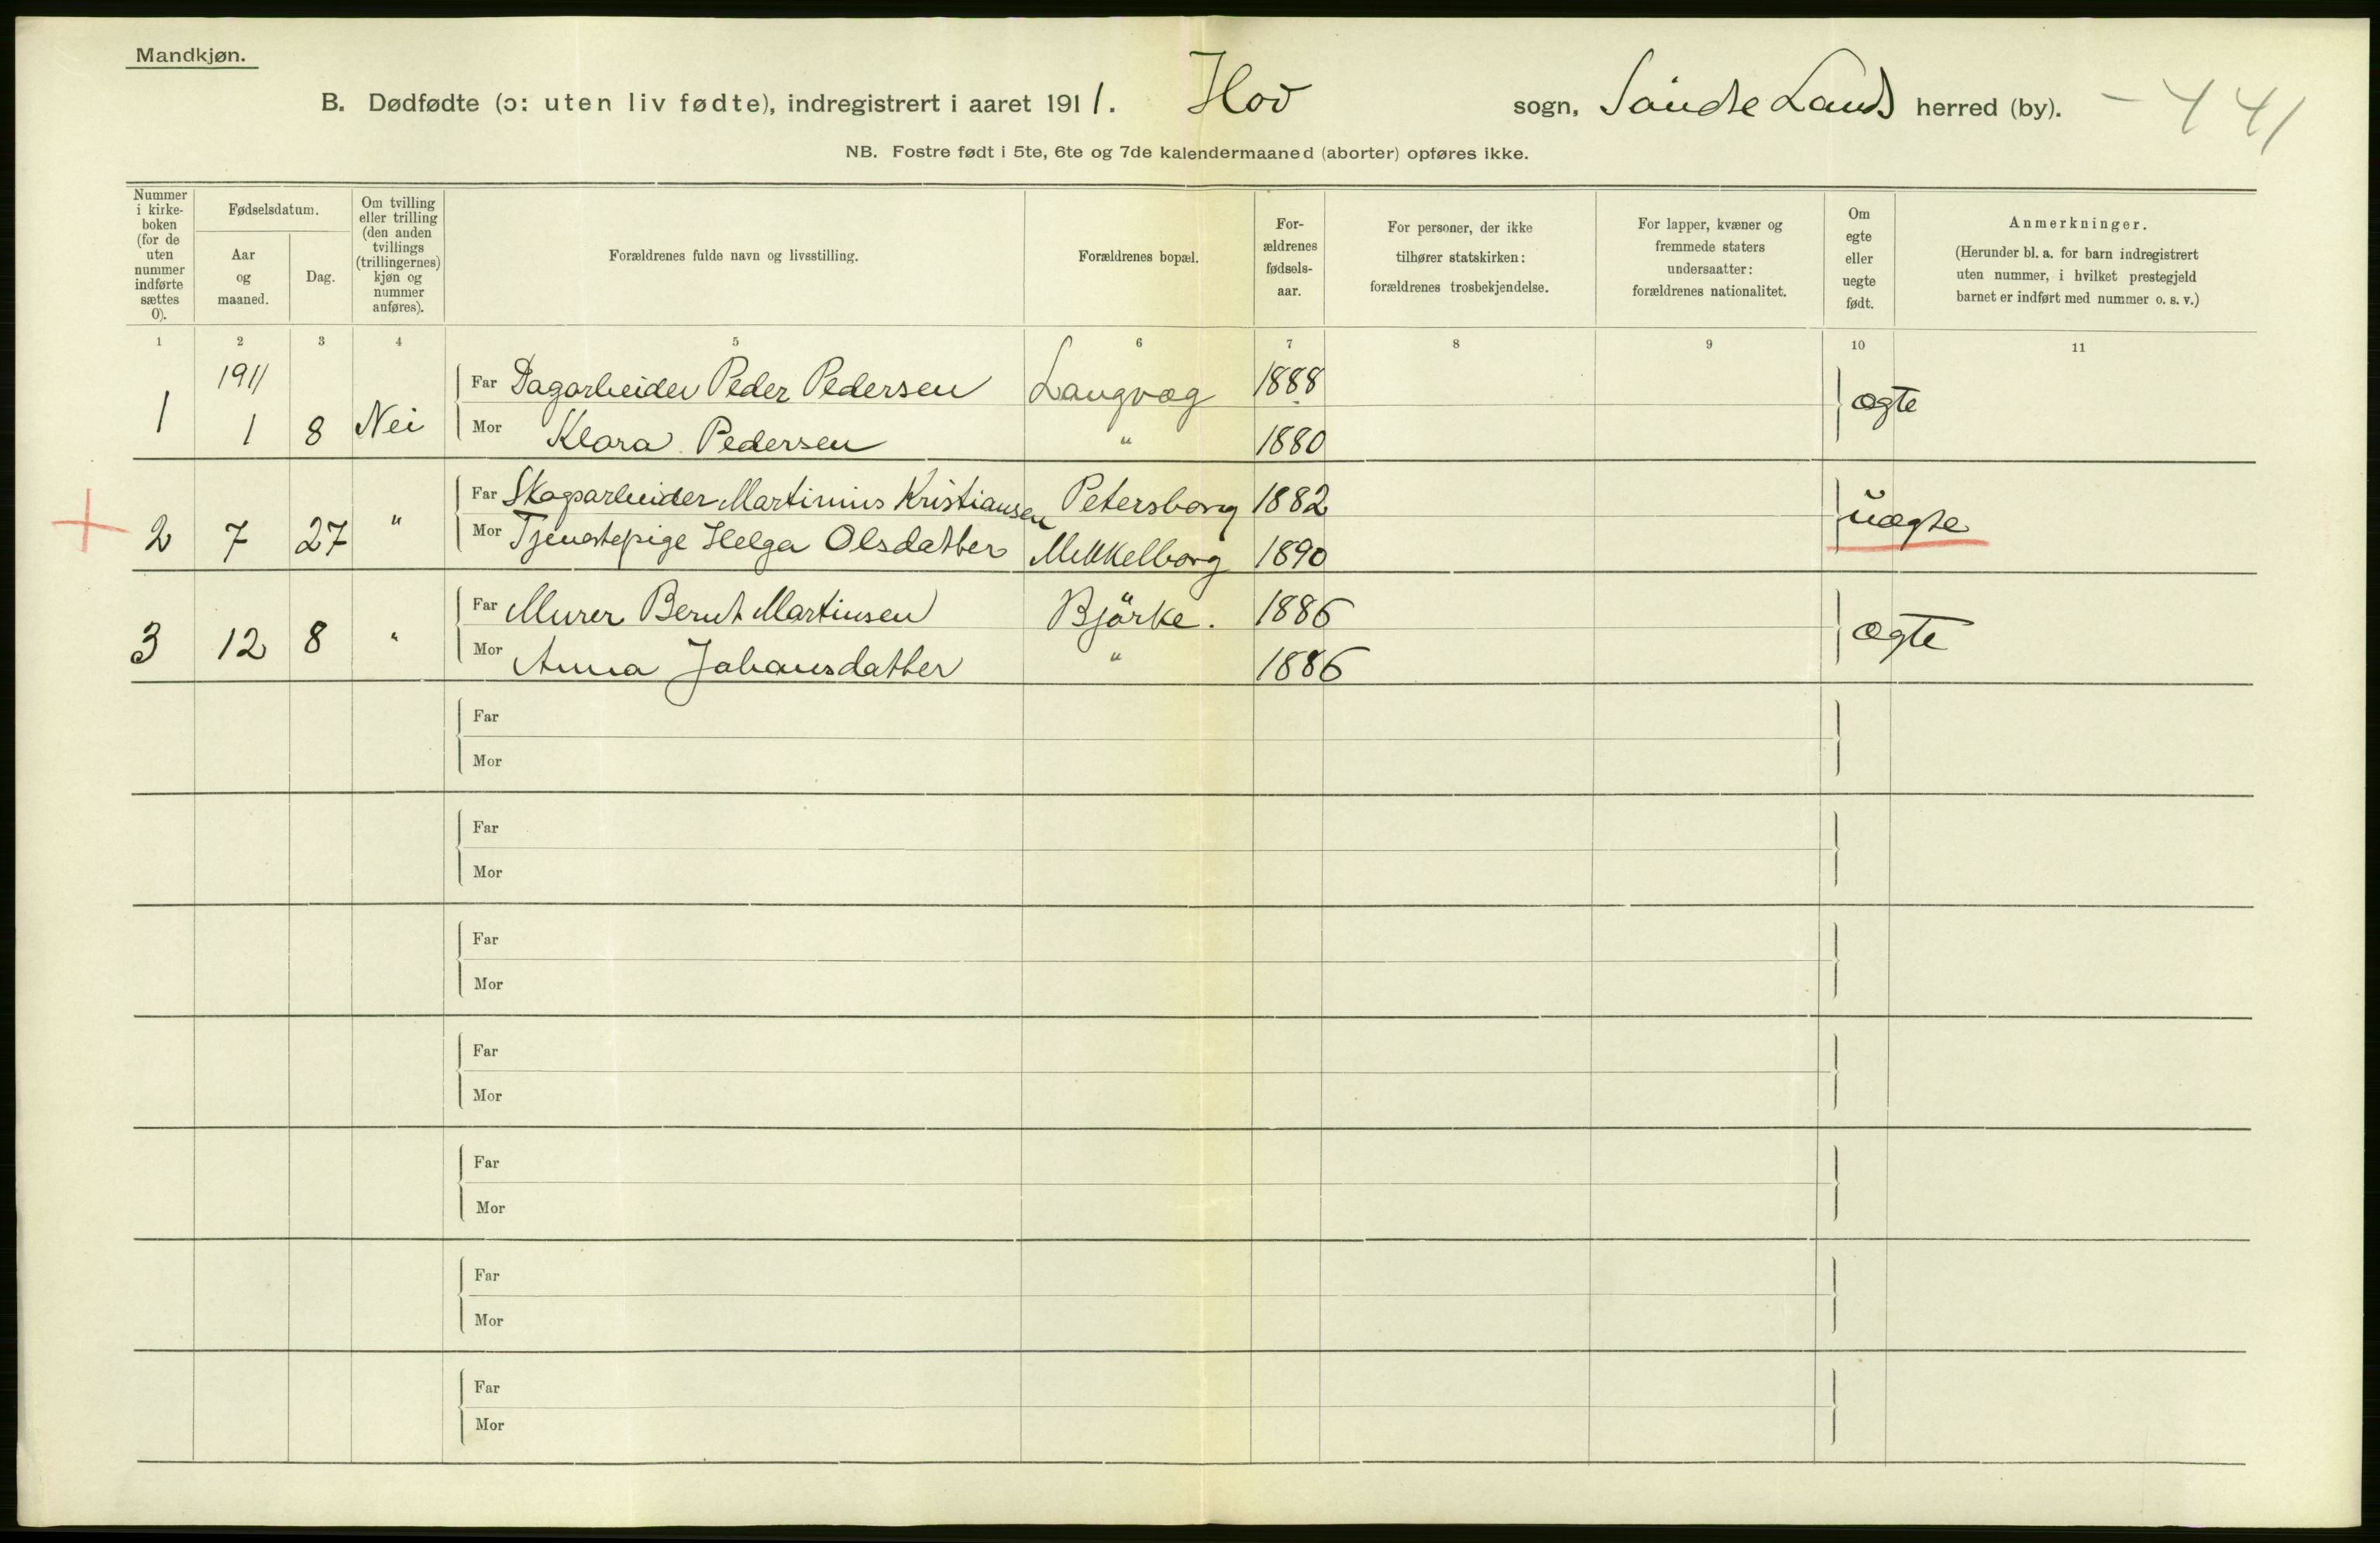 Mandkjøn.
B. Dødfødte (ɔ: uten liv fødte), indregistrert i aaret 1911. Hov sogn, Søndre Lands herred (by). - 441
NB. Fostre født i 5te, 6te og 7de kalendermaaned (aborter) opføres ikke.
Nummer i kirke- boken (for de uten nummer indførte sættes 0).
Fødselsdatum.
Aar og maaned.
Dag.
Om tvilling eller trilling (den anden tvillings (trillingernes) kjøn og nummer anføres).
Forældrenes fulde navn og livsstilling.
Forældrenes bopæl.
For- ældrenes fødsels- aar.
For personer, der ikke tilhører statskirken: forældrenes trosbekjendelse.
For lapper, kvæner og fremmede staters undersaatter: forældrenes nationalitet.
Om egte eller uegte født.
Anmerkninger.
(Herunder bl. a. for barn indregistrert uten nummer, i hvilket prestegjeld barnet er indført med nummer o. s. v.)
1 2 3 4 5 6 7 8 9 10 11
1911
Far Dagarbeider Peder Pedersen Langvæg 1888 ægte
1 1 8 Nei Mor Klara Pedersen " 1880
Far Skogsarbeider Martinius Kristiansen Petersborg 1882 uægte
+ 2 7 27 " Mor Tjenestepige Helga Olsdatter Mikkelborg 1890
Far Murer Bernt Martinsen Björke. 1886 ægte
3 12 8 " Mor Anna Johansdatter " 1886
Far
Mor
Far
Mor
Far
Mor
Far
Mor
Far
Mor
Far
Mor
Far
Mor